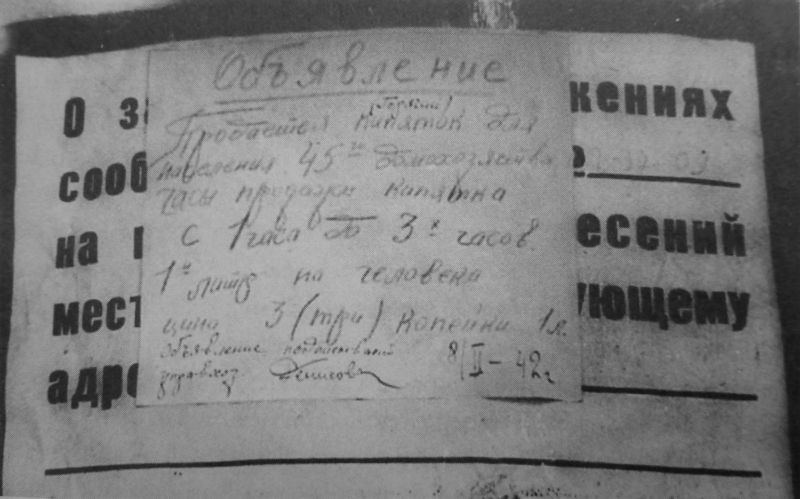 Объявление
О за
жениях
(горячий)
Продается кипяток для
населения 45го домохозяйства
сооб
часы продажи кипятка
с 1 часа до 3х часов
на
есений
1н литр на человека
мест
ующему
цена 3 (три) копейки 1 л.
Объявление
управхоз Денисова
8/II – 42 г
адре